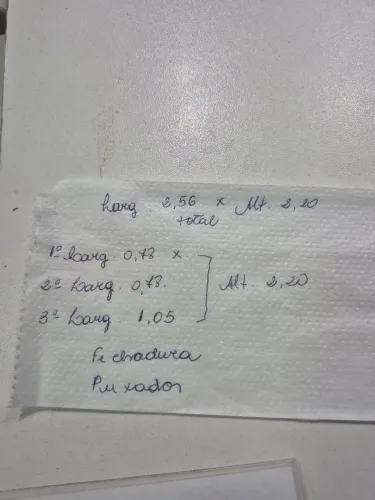 Larg. 2,56 x Alt. 2,20
total
1º Larg. 0,73 x
2º Larg. 0,78. Alt. 2,20
3º Larg. 1.05
Fechadura
Puxador